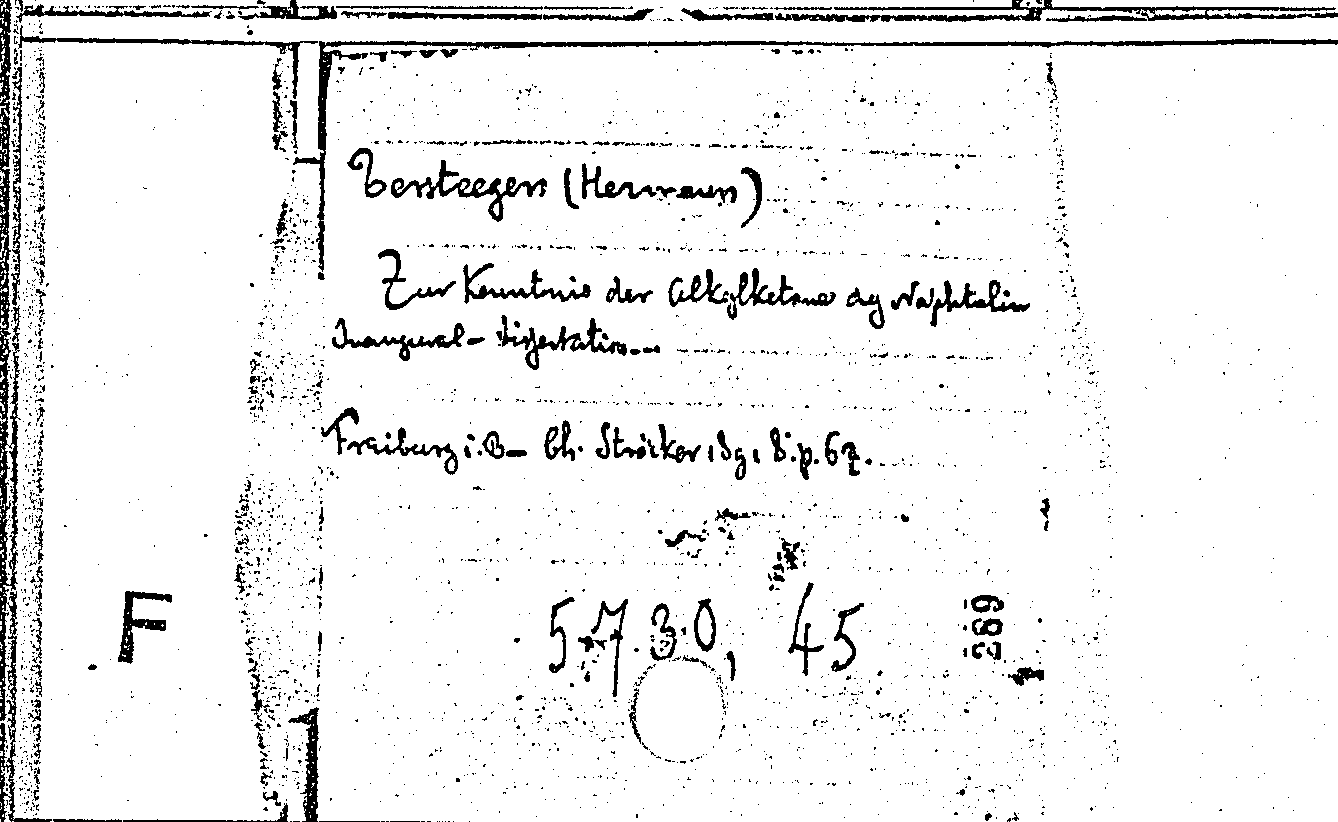 Tersteegen (Hermann)
Zur Kenntnis der Alkylketone dg Naphtalin
Inaugural-Dissertation...
Freiburg i.B_ Ch. Ströcker, 8.p. 67.
F
5.7.30, 45
269